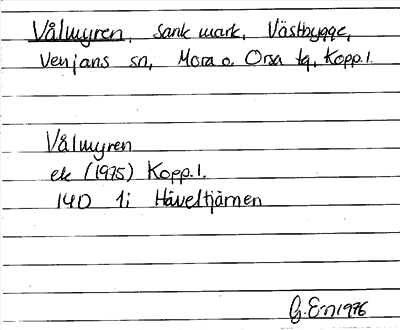 Vålmyren, sank mark, Västbygge,
Venjans sn, Mora o. Orsa tg, Kopp.l.
Vålmyren
ek (1975) Kopp.l.
14D 1i Håveltjärnen
G.E-n 1976